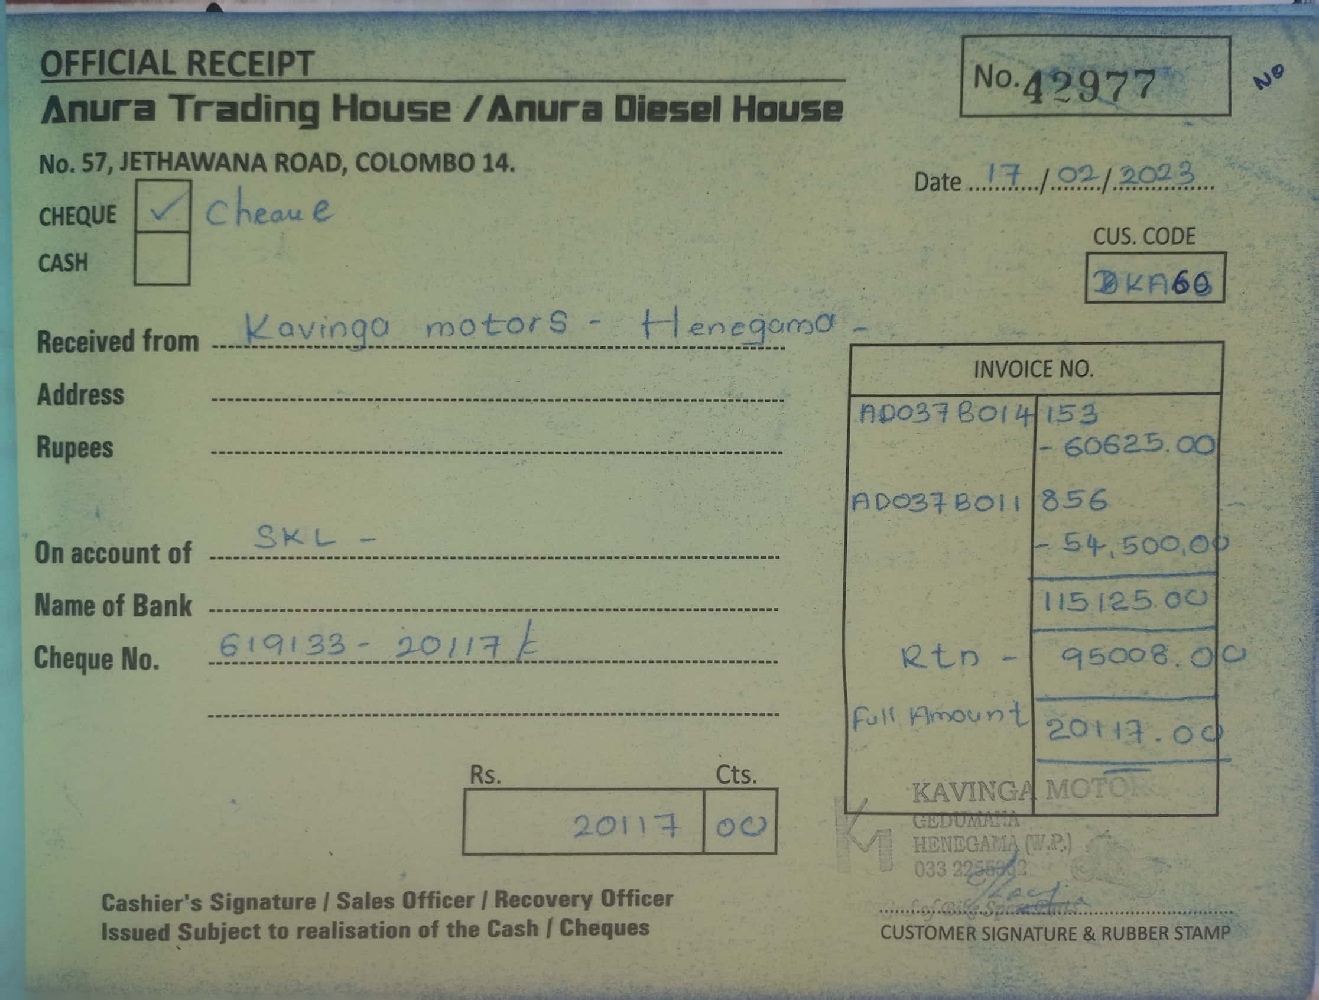 OFFICIAL RECEIPT
No. 42977
No
Anura Trading House / Anura Diesel House
No. 57, JETHAWANA ROAD, COLOMBO 14.
Date 17/02/2023
CHEQUE ✓ Cheaue
CASH
CUS. CODE
Received from Kavinga motors - Henegama -
Address
Rupees
INVOICE NO.
AD037B014 153
- 60625.00
AD037B011 856
- 54,500,00
115125.00
Rtn - 95008.00
Full Amount 20117.00
On account of SKL -
Name of Bank
Cheque No. 619133 - 20117
Rs. Cts.
20117 00
KAVINGA MOTOR
GEDUMANA
HENEGAMA (W.P.)
033
Cashier's Signature / Sales Officer / Recovery Officer
Issued Subject to realisation of the Cash / Cheques
CUSTOMER SIGNATURE & RUBBER STAMP